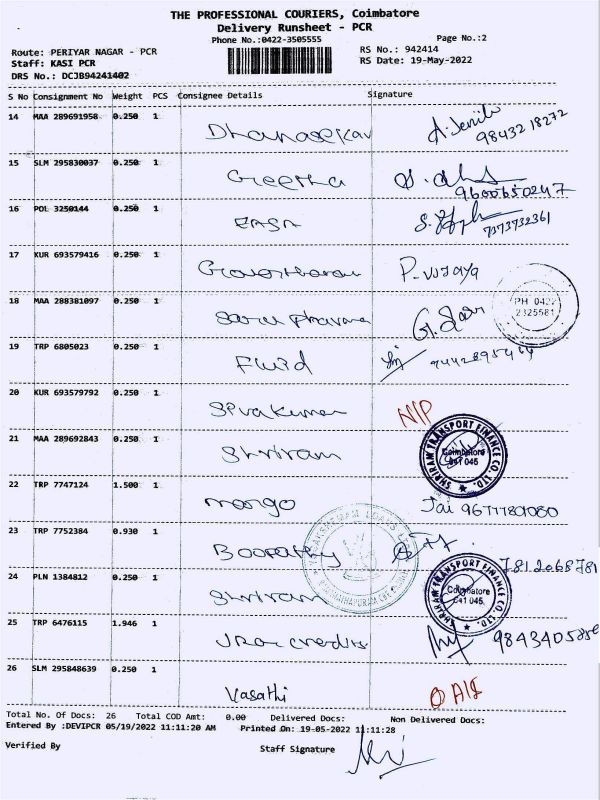 THE PROFESSIONAL COURIERS, Coimbatore
Delivery Runsheet - PCR
Phone No.:0422-3505555 Page No.:2
Route: PERIYAR NAGAR - PCR RS No.: 942414
Staff: KASI PCR RS Date: 19-May-2022
DRS No.: DCJB94241402
S No Consignment No Weight PCS Consignee Details Signature
14 MAA 289691958 0.250 1 Dhanasekar 9843218272
15 SLM 295830037 0.250 1 Geetha 9600650247
16 POL 3250144 0.250 1 EASA 7373732361
17 KUR 693579416 0.250 1 P. vijaya
18 MAA 288381097 0.250 1 PH 0422 2325581
19 TRP 6805023 0.250 1 Fluid
20 KUR 693579792 0.250 1 Sivakumar NIP
21 MAA 289692843 0.250 1 Shriram SHRIRAM TRANSPORT FINANCE CO. LTD. Coimbatore 641 045
22 TRP 7747124 1.500 1 mango Jai
23 TRP 7752384 0.930 1 Boopathy
24 PLN 1384812 0.250 1 Shriram 7812068781 SHRIRAM TRANSPORT FINANCE CO. LTD. Coimbatore 641 045.
25 TRP 6476115 1.946 1 credits
26 SLM 295848639 0.250 1 Vasathi
Total No. Of Docs: 26 Total COD Amt: 0.00 Delivered Docs: Non Delivered Docs:
Entered By :DEVIPCR 05/19/2022 11:11:20 AM Printed On: 19-05-2022 11:11:28
Verified By Staff Signature